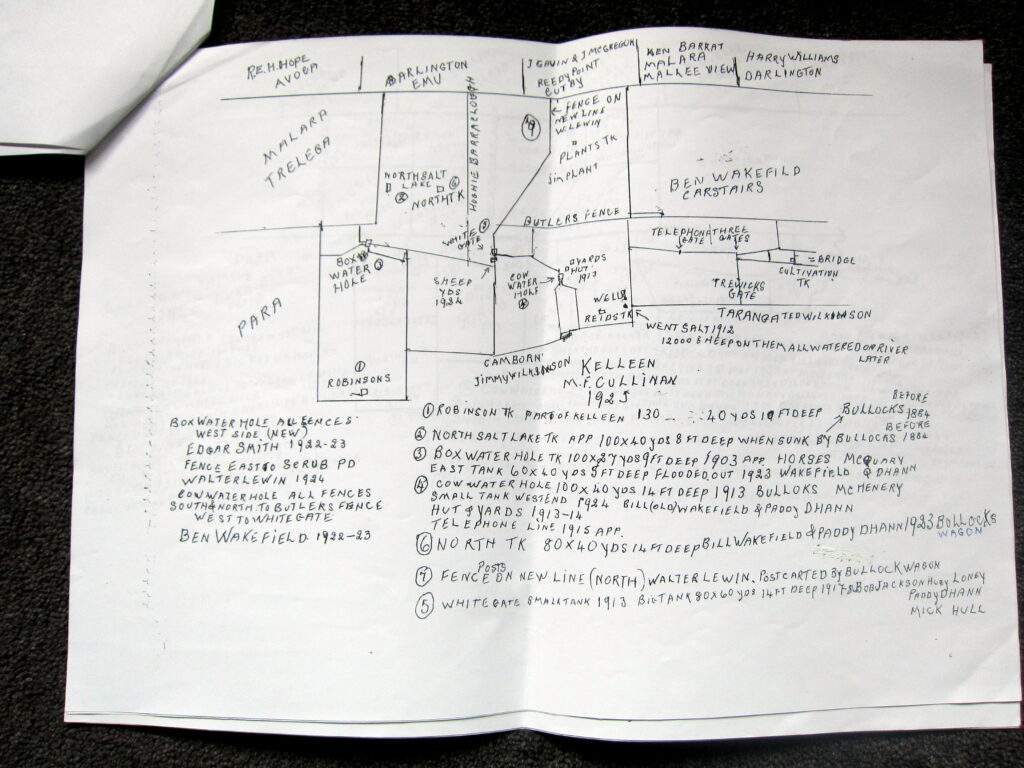 R.E.H.HOPE
AVOCA
DARLINGTON
EMU
J GAVIN & J MCGREGOR
REEDY POINT
CUTBY
KEN BARRAT
MALARA
MALLEE VIEW
HARRY WILLIAMS
DARLINGTON
MALARA
TRELEGA
HUGHIE BARRACLOUGH
FENCE ON
NEW LINE
W. LEWIN
PLANTS TK
JIM PLANT
NORTH SALT
LAKE
②
⑥
NORTH TK
BEN WAKEFILD
CARSTAIRS
BUTLERS FENCE
⑤
WHITE
GATE
TELEPHONE
GATE
THREE
GATES
BRIDGE
CULTIVATION
TK
BOX
WATER
HOLE
③
SHEEP
YDS
1924
COW
WATER
HOLE
④
YARDS
HUT
1913
WELL
REIDS TK
TREWICKS
GATE
PARA
TARANGA TED WILKINSON
WENT SALT 1912
12000 SHEEP ON THEM ALL WATERED ON RIVER
LATER
①
ROBINSONS
CAMBORN
JIMMY WILKINSON
KELLEEN
M.F. CULLINAN
1925
BOX WATER HOLE ALL FENCES
WEST SIDE (NEW)
EDGAR SMITH 1922-23
FENCE EAST TO SCRUB PD
WALTER LEWIN 1924
COW WATER HOLE ALL FENCES
SOUTH & NORTH TO BUTLERS FENCE
WEST TO WHITE GATE
BEN WAKEFIELD 1922-23
① ROBINSON TK PART OF KELLEEN 130 40 YDS FT DEEP BULLOCKS BEFORE 1884
② NORTH SALT LAKE TK APP 100X40 YDS 8 FT DEEP WHEN SUNK BY BULLOCKS BEFORE 1884
③ BOX WATER HOLE TK 100X YDS 9FT DEEP 1903 APP HORSES MCQUARY
EAST TANK 60X40 YDS FT DEEP FLOODED OUT 1923 WAKEFIELD & DHANN
④ COW WATER HOLE 100X40 YDS 14 FT DEEP 1913 BULLOKS MCHENERY
SMALL TANK WEST END 1924 BILL (OLD) WAKEFIELD & PADDY DHANN
HUT & YARDS 1913-14
TELEPHONE LINE 1915 APP.
⑥ NORTH TK 80X40 YDS 14 FT DEEP BILL WAKEFIELD & PADDY DHANN 1923 BULLOCKS
WAGON
POSTS
⑦ FENCE ON NEW LINE (NORTH) WALTER LEWIN. POST CARTED BY BULLOCK WAGON
⑤ WHITE GATE SMALL TANK 1913 BIG TANK 80X60 YDS 14 FT DEEP BOB JACKSON HUEY LONEY
PADDY DHANN
MICK HULL